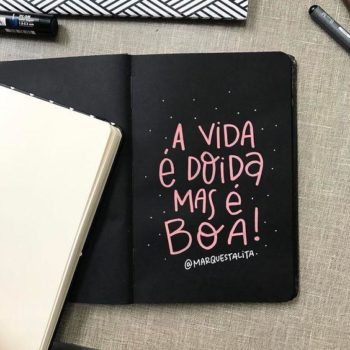 A VIDA
É DOIDA
MAS É
BOA!
@MARQUESTALITA